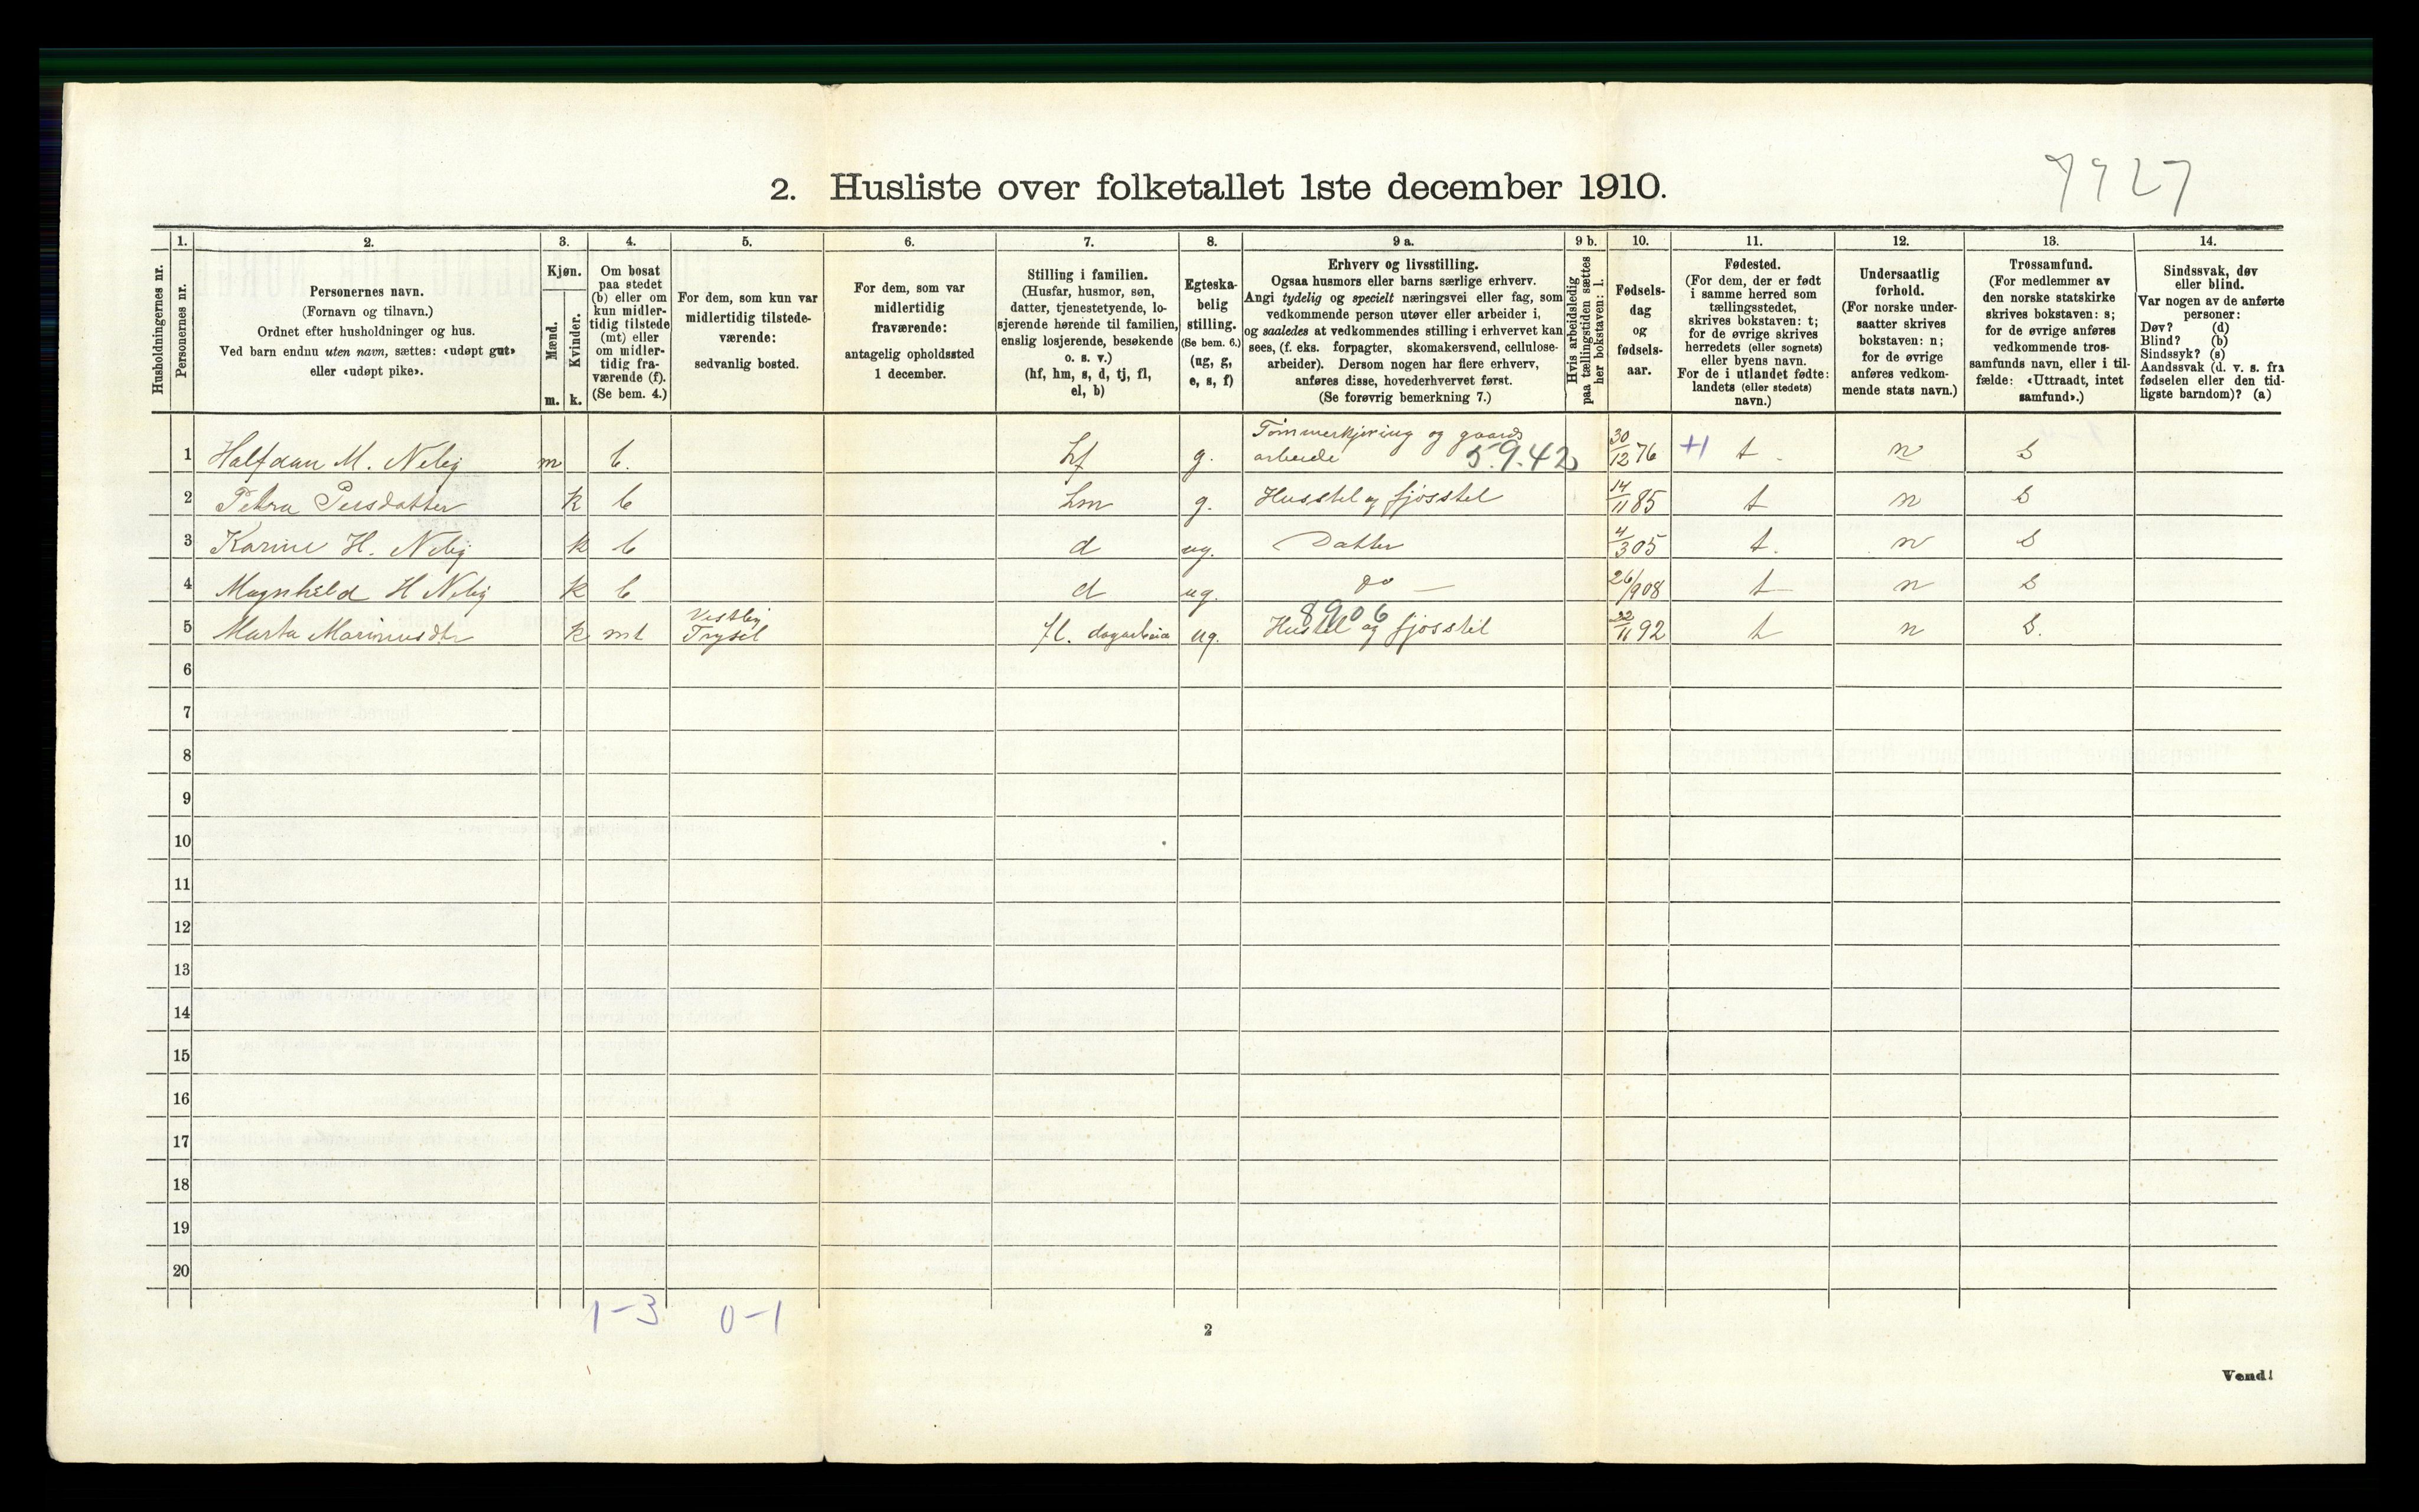 7927
2. Husliste over folketallet 1ste december 1910.
Husholdningernes nr.
1.
Personernes nr.
2.
Personernes navn.
(Fornavn og tilnavn.)
Ordnet efter husholdninger og hus.
Ved barn endnu uten navn, sættes: «udøpt gut»
eller «udøpt pike».
3.
Kjøn.
Mænd.
Kvinder.
m. k.
4.
Om bosat
paa stedet
(b) eller om
kun midler-
tidig tilstede
(mt) eller
om midler-
tidig fra-
værende (f).
(Se bem. 4.)
5.
For dem, som kun var
midlertidig tilstede-
værende:
sedvanlig bosted.
6.
For dem, som var
midlertidig
fraværende:
antagelig opholdssted
1 december.
7.
Stilling i familien.
(Husfar, husmor, søn,
datter, tjenestetyende, lo-
sjerende hørende til familien,
enslig losjerende, besøkende
o. s. v.)
(hf, hm, s, d, tj, fl,
el, b)
8.
Egteska-
belig
stilling.
(Se bem. 6.)
(ug, g,
e, s, f)
9 a.
Erhverv og livsstilling.
Ogsaa husmors eller barns særlige erhverv.
Angi tydelig og specielt næringsvei eller fag, som
vedkommende person utøver eller arbeider i,
og saaledes at vedkommendes stilling i erhvervet kan
sees, (f. eks. forpagter, skomakersvend, cellulose-
arbeider). Dersom nogen har flere erhverv,
anføres disse, hovederhvervet først.
(Se forøvrig bemerkning 7.)
9 b.
Hvis arbeidsledig
paa tællingstiden sættes
her bokstaven: l.
10.
Fødsels-
dag
og
fødsels-
aar.
11.
Fødested.
(For dem, der er født
i samme herred som
tællingsstedet,
skrives bokstaven: t;
for de øvrige skrives
herredets (eller sognets)
eller byens navn.
For de i utlandet fødte:
landets (eller stedets)
navn.)
12.
Undersaatlig
forhold.
(For norske under-
saatter skrives
bokstaven: n;
for de øvrige
anføres vedkom-
mende stats navn.)
13.
Trossamfund.
(For medlemmer av
den norske statskirke
skrives bokstaven: s;
for de øvrige anføres
vedkommende tros-
samfunds navn, eller i til-
fælde: «Uttraadt, intet
samfund».)
14.
Sindssvak, døv
eller blind.
Var nogen av de anførte
personer:
Døv? (d)
Blind? (b)
Sindssyk? (s)
Aandssvak (d. v. s. fra
fødselen eller den tid-
ligste barndom)? (a)
Tømmerkjøring og gaards
1 Halfdan M. Nebj m b. hf g. arbeide 5.9.42 30/12 76 +1 t. n S
2 Petra Persdatter k b hm g. Husstel og fjøsstel 14/11 85 t n S
3 Karine H. Nebj k b d ug. Datter 4/3 05 t. n S
4 Magnhild H Nebj k b d ug. do — 26/9 08 t n S
Vestby 8906
5 Marta Marinusdtr k mt Trysil fl. dagarbeide ug. Husstel og fjøsstel 22/11 92 t n S.
6
7
8
9
10
11
12
13
14
15
16
17
18
19
20
1-3 0-1
2
Vend!